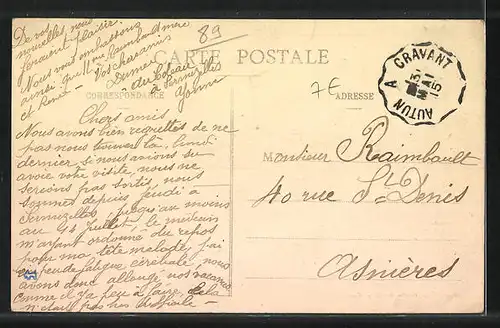 De vos
nouvelles nous
feraient plaisir.
Nous vous embrassons
ainsi que Mme Raimbault mère
et René - Vos chers amis
Dumez
du bateau
à Sermizelles
Yonne
89
CARTE POSTALE
CORRESPONDANCE
ADRESSE
7€
CRAVANT
13
MAI
15
AUTUN A
Chers amis,
Nous avons bien regrettés de ne
pas nous trouver là, lundi
dernier, si nous avions su
avoir votre visite, nous ne
serions pas sortis, nous
sommes depuis jeudi à
Sermizelles, jusqu'au moins
au 14 juillet, le médecin
m'ayant ordonné du repos
pour ma tête malade, j'ai
un peu de fatigue cérébrale, nous
avons donc allongé nos vacances
comme il y a peu à faire, cela
n'étant pas nos
Monsieur Raimbault
40 rue St Denis
Asnières